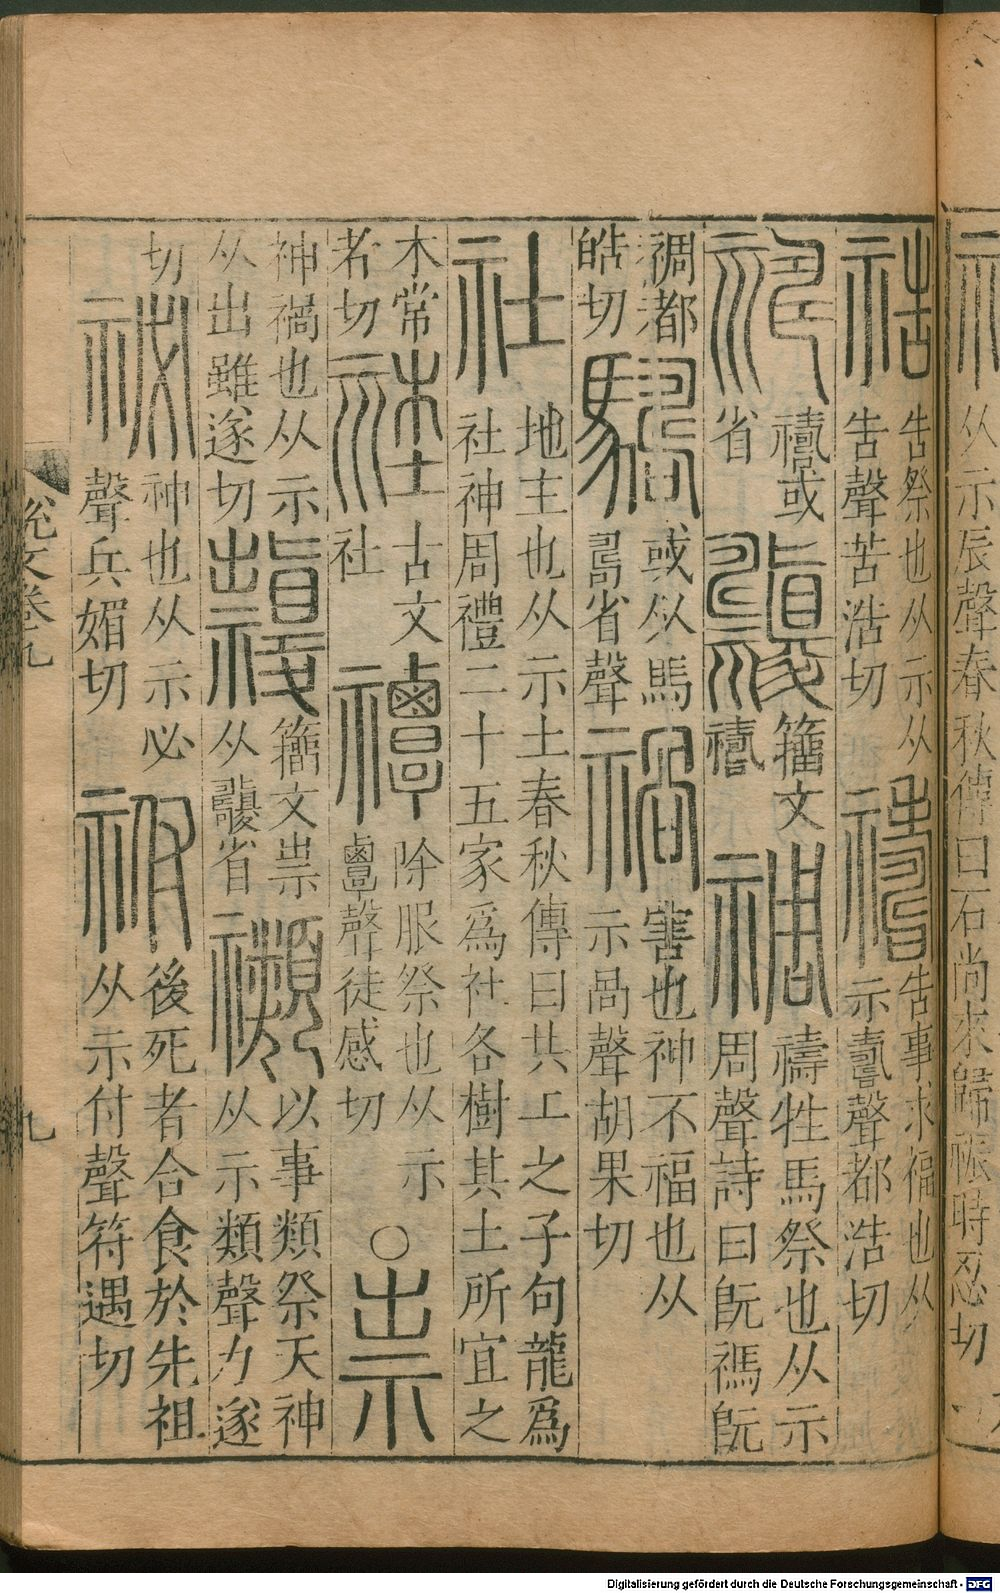 从示辰聲春秋傳曰石尚來歸祳時忍切
祰
告祭也从示从
告聲苦浩切
禱
告事求福也从
示𠷎聲都浩切
禱或
省
籒文
禱
禂
禱牲馬祭也从示
周聲詩曰既禡既
禂都
皓切
或从馬
𠷎省聲
禍
害也神不福也从
示咼聲胡果切
社
地主也从示土春秋傳曰共工之子句龍爲
社神周禮二十五家爲社各樹其土所宜之
木常
者切
古文
社
禫
除服祭也从示
覃聲徒感切
○
祟
神禍也从示
从出雖遂切
籒文祟
从省
禷
以事類祭天神
从示類聲力遂
切
祕
神也从示必
聲兵媚切
祔
後死者合食於先祖
从示付聲符遇切
說文卷九
九
Digitalisierung gefördert durch die Deutsche Forschungsgemeinschaft - DFG